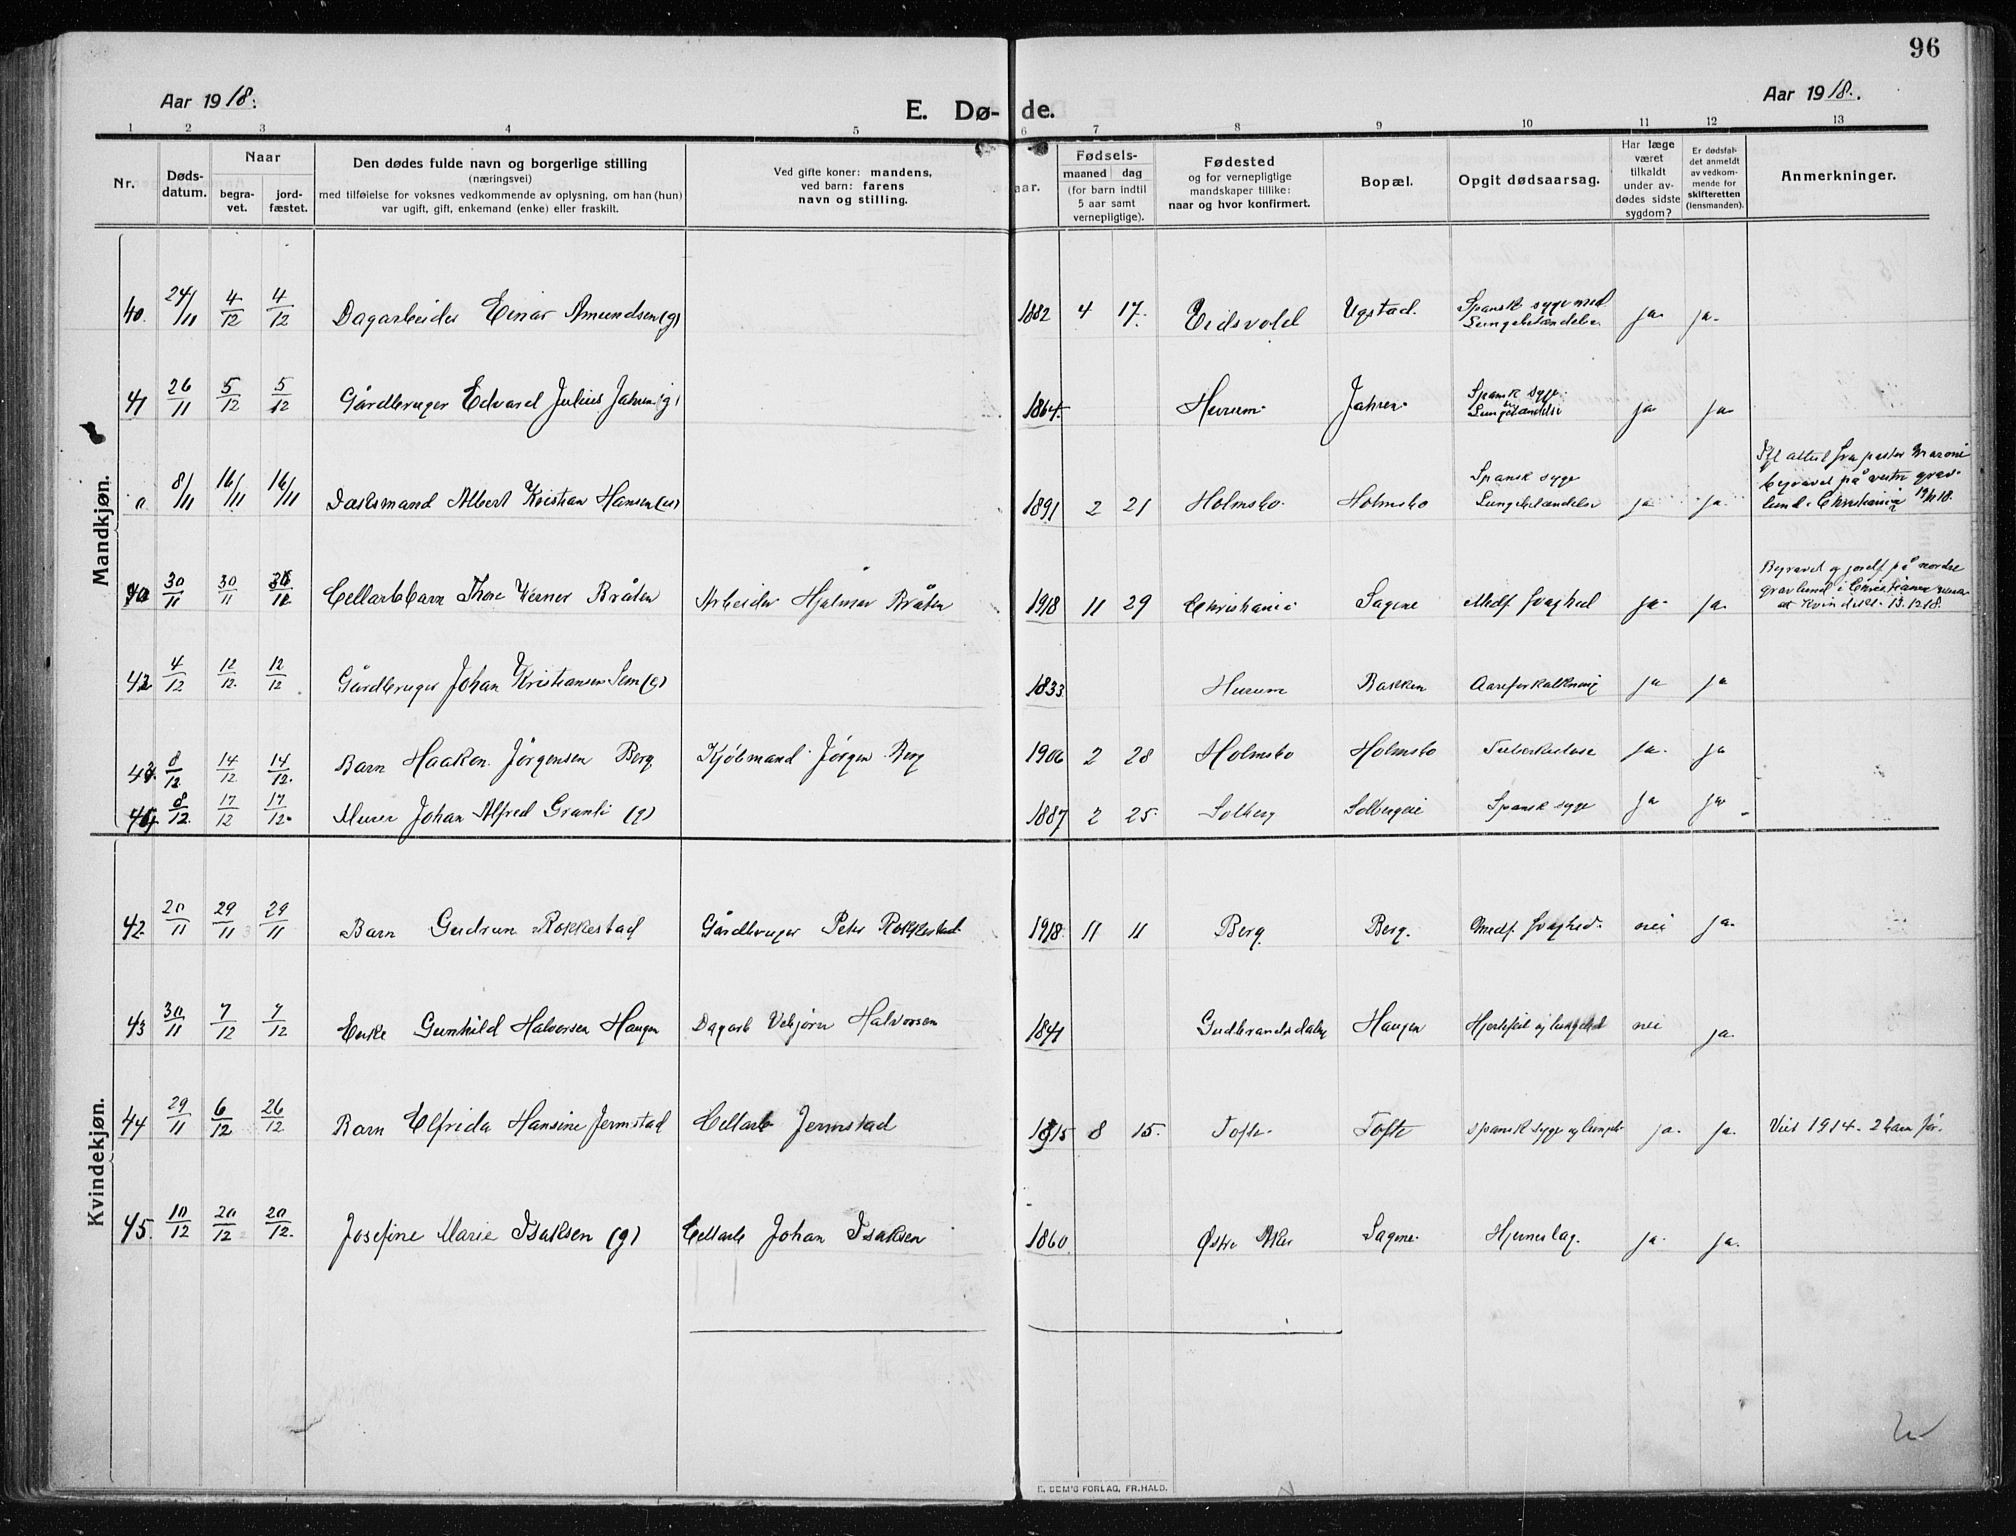 96
Aar 1918. E. Dø- de. Aar 1918.
1 2 3 4 5 6 7 8 9 10 11 12 13
Nr.
Døds-
datum.
Naar
begra-
vet.
jord-
fæstet.
Den dødes fulde navn og borgerlige stilling
(næringsvei)
med tilføielse for voksnes vedkommende av oplysning, om han (hun)
var ugift, gift, enkemand (enke) eller fraskilt.
Ved gifte koner: mandens,
ved barn: farens
navn og stilling.
aar.
Fødsels-
maaned dag
(for barn indtil
5 aar samt
vernepligtige).
Fødested
og for vernepligtige
mandskaper tillike:
naar og hvor konfirmert.
Bopæl.
Opgit dødsaarsag.
Har læge
været
tilkaldt
under av-
dødes sidste
sygdom?
Er dødsfal-
det anmeldt
av vedkom-
mende for
skifteretten
(lensmanden).
Anmerkninger.
Mandkjøn.
40. 24/11 4/12 4/12 Dagarbeider Einar Amundsen (g) 1882 4 17. Eidsvold Ugstad. Spansk syge med
Lungebetændelse ja ja
41 26/11 5/12 5/12 Gårdbruger Edvard Julius Jahren (g) 1864. Hurum. Jahren. Spansk syge.
Lungebetændelse ja ja
0 8/11 16/11 16/11 Albert Kristian Hansen 1891 2 21 Holmsbo. Holmsbo Spansk syge
Lungebetændelse ja ja. attest fra pastor
begravet på vestre grav-
lund i Christiania
30/11 30/11 Cellarbbarn Thore Verner Bråten Arbeider Hjalmar Bråten 1918 11 29 Christiania Sagene Medf. svaghed ja ja Begravet og jordf på nordre
gravlund i Christiania
13.12.18.
42 4/12 12/12 12/12 Gårdbruger Johan Kristiansen Sem (g) 1833 Hurum Bakken Aareforkalkning ja ja
43. 8/12 14/12 14/12. Barn Haakon Jørgensen Berg Kjøbmand Jørgen Berg 1906 2 28 Holmsbo Holmsbo Tuberkulose ja ja
44. 8/12 17/12 17/12. Murer Johan Alfred Granli (g) 1887 2 25. Solberg Solbergeie Spansk syge ja ja
Kvindekjøn.
42. 20/11 29/11 29/11 Barn Gudrun Rokkestad Gårdbruger Peter Rokkestad 1918 11 11 Berg Berg. Medf. svaghed. nei ja
43 30/11 7/12 7/12 Enke Gunhild Halvorsen Haugen Dagarb Vebjørn Halvorsen 1841 Gudbrandsdalen Haugen Hjertefeil og nei ja.
44 29/11 6/12 26/12 Barn Elfrida Hansine Jermstad Cellarb Jermstad 1915 8 15. Tofte. Tofte spansk syge og ja. ja. 1914. 2 barn før.
45. 10/12 20/12 20/12. Josefine Marie Isaksen (g) Cellarb Johan Isaksen 1860 Østre Aker Sagene. Hjerneslag. ja. ja.
E. SEM'S FORLAG, FR.HALD.